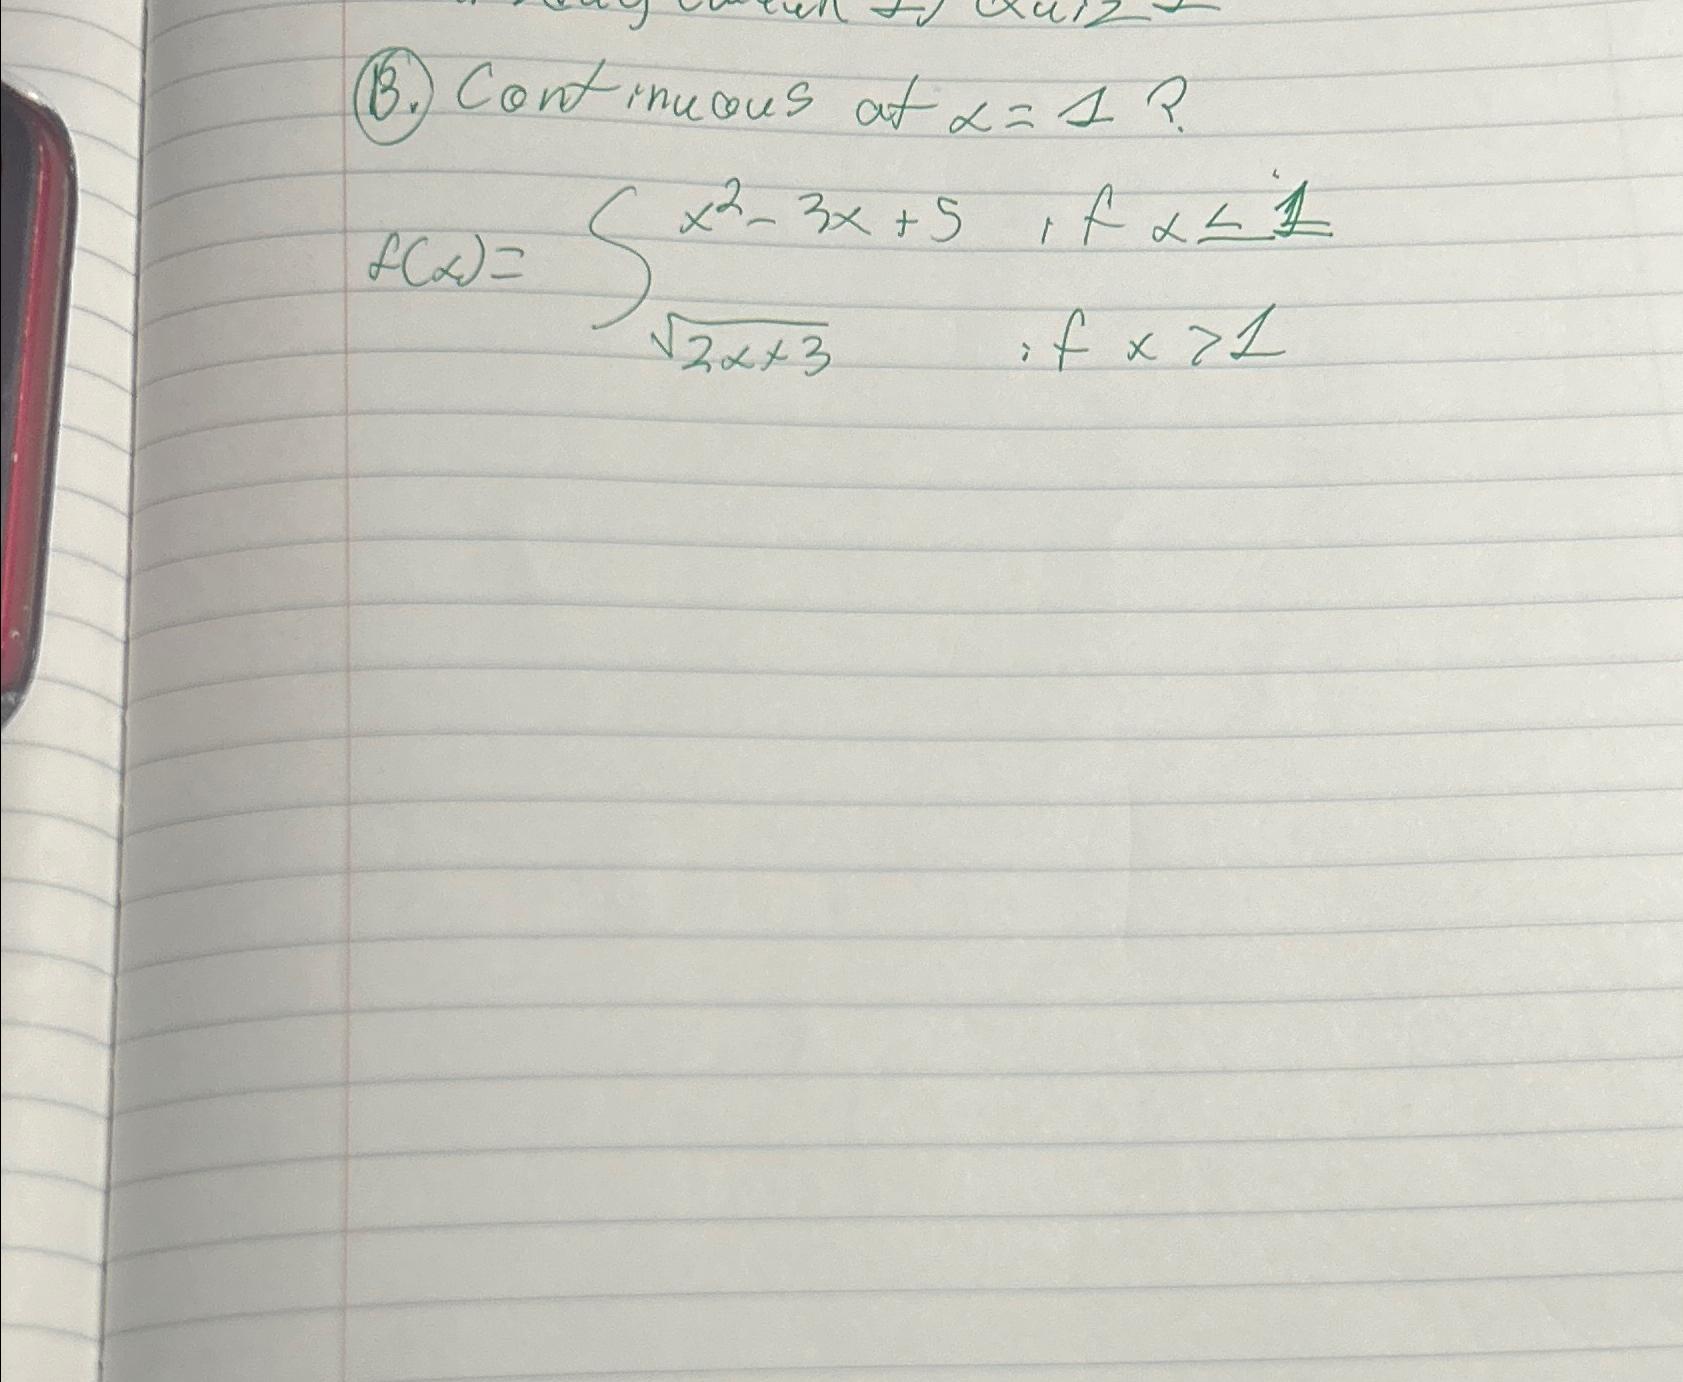 Quiz 1
B. Continuous at x = 1 ?
f(x) = { x² - 3x + 5 if x ≤ 1
√2x+3 if x > 1